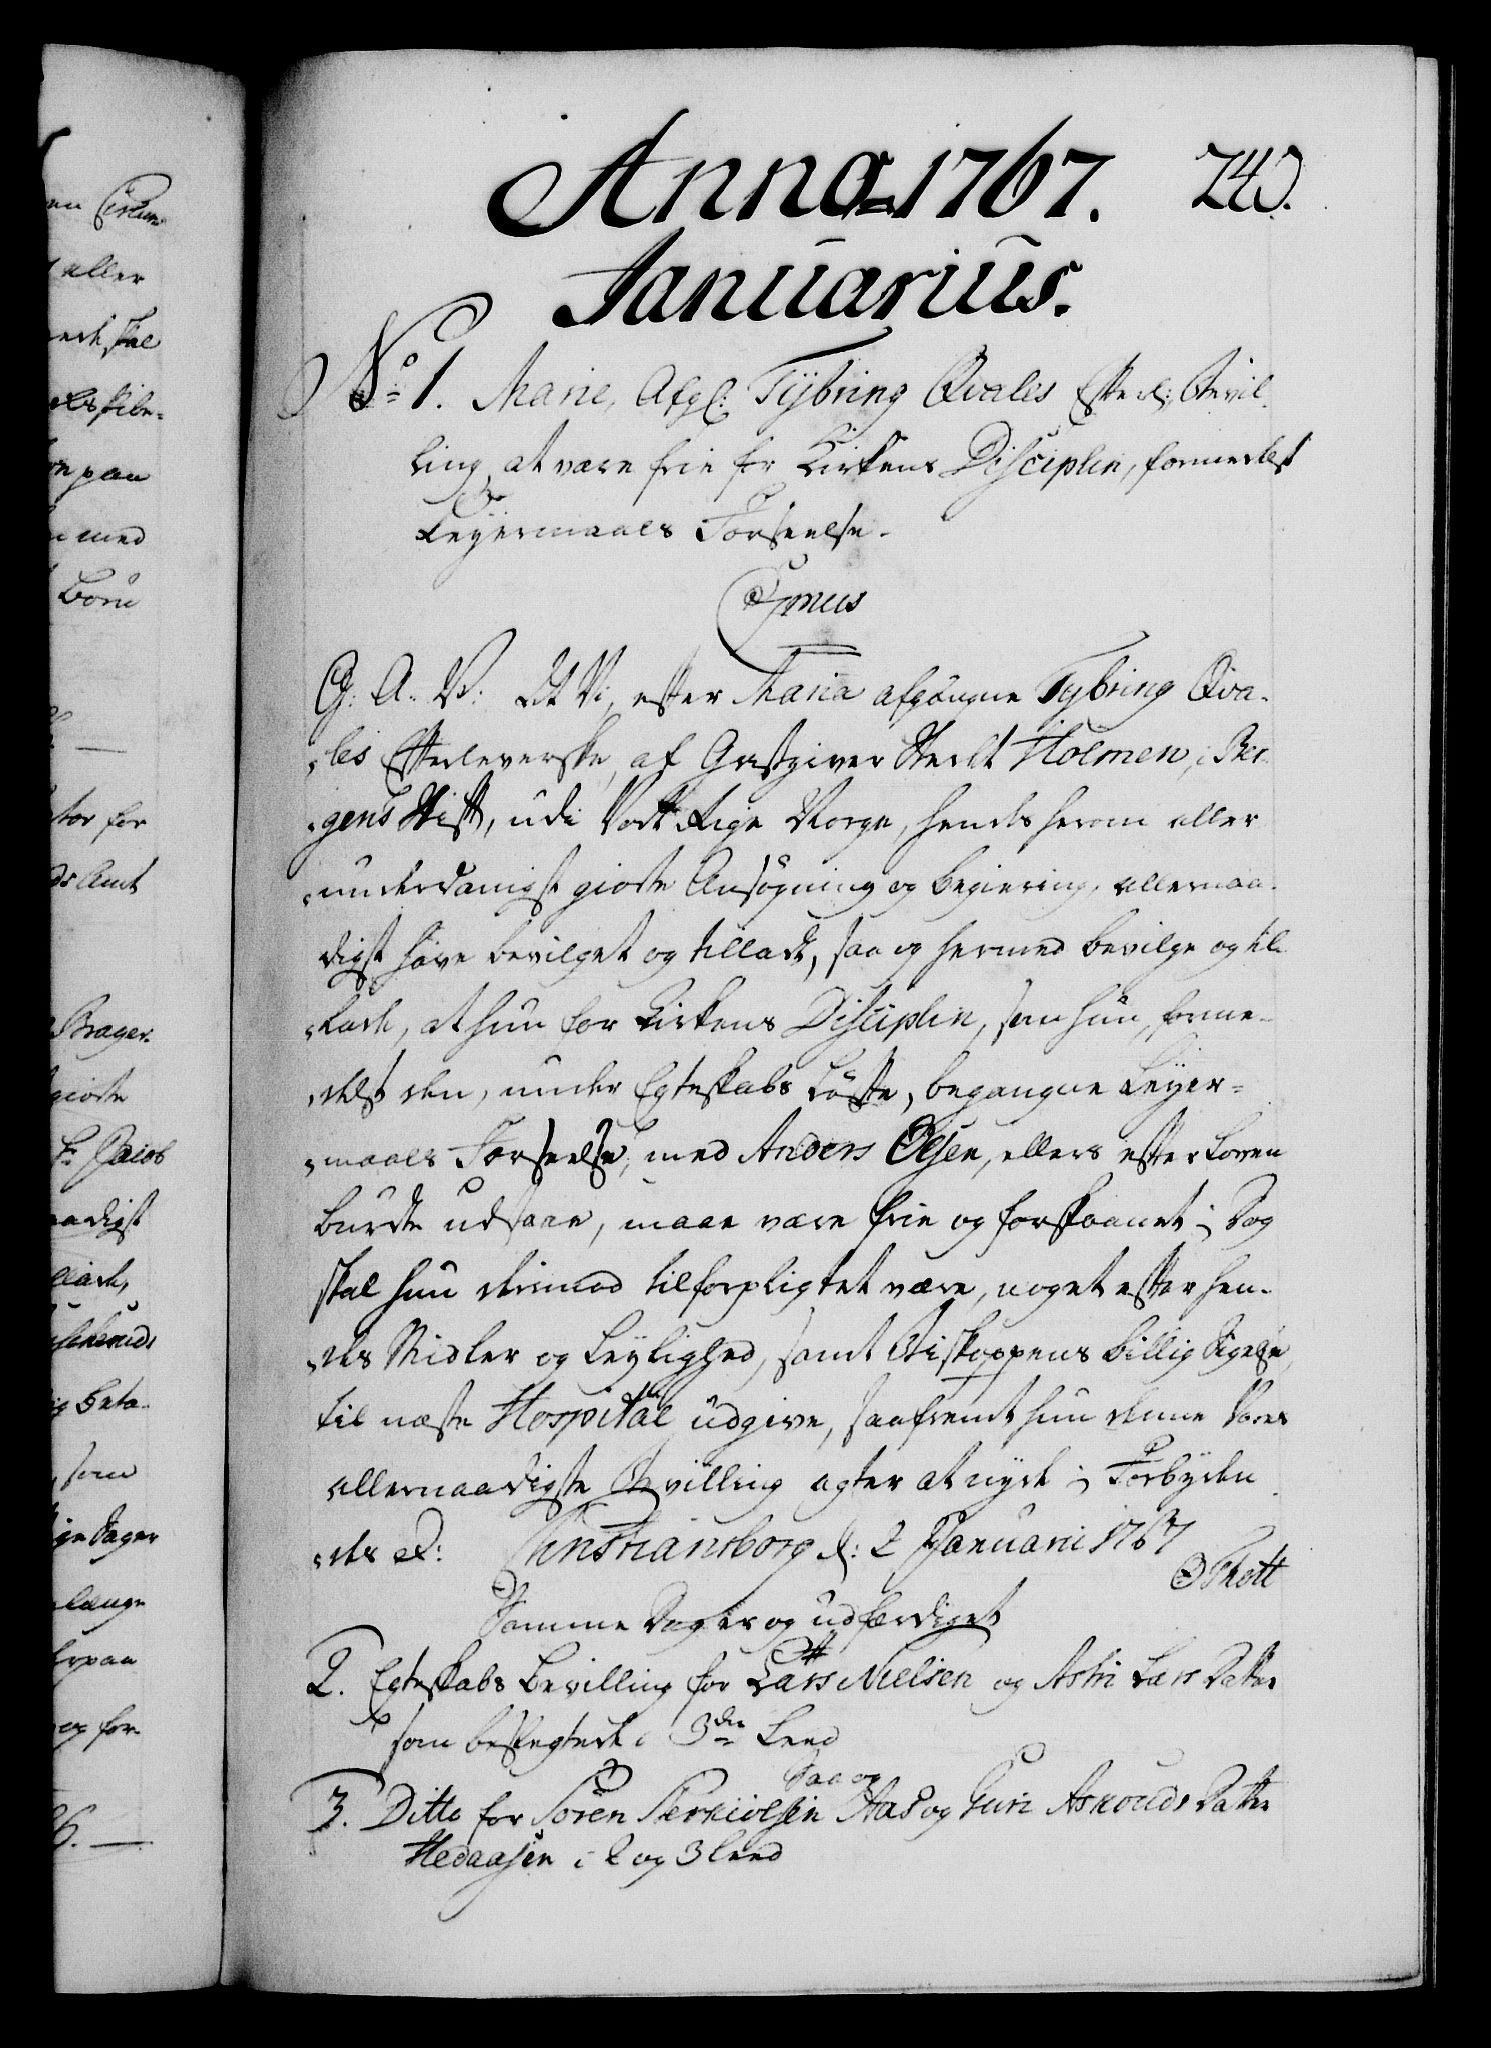 Anno 1767. 240.
Januarius.
No 1. Marie, Afgl: Tÿbring Qvales Efterl: Bevil-
ling, at være frie for Kirkens Disciplin, formedelst
Leÿermaals Forseelse.
G. A. V. At Vi, efter Maria afgangne Tybring Qva-
les Efterleverske, af Giæstgiver Stedet Holmen, i Ber-
gens Stift, udi Vort Rige Norge, hendes herom aller
underdanigst giorte Ansøgning og begiering, allernaa-
digst have bevilget og tilladt, saa og hermed bevilge og til-
lade, at hun for Kirkens Disciplin, som hun, forme-
delst den, under Egteskabs Løfte, begangne Leÿer-
maals Forseelse, med Anders Olsen, ellers efter Loven
burde udstaae, maae være frie og forskaanet; Dog
skal hun derimod tilforpligtet være, noget efter hen-
des Midler og Leylighed, samt Biskoppens billig Sigelse,
til næste Hospital udgive, saafremt hun denne Vores
allernaadigste Bevilling agter at nyde; Forbyden
des &: Christiansborg d: 2 Januarii 1767
O Thott
Samme Dag er og udfærdiget
2. Egteskabs Bevilling for Lars Nielsen og Astri Lars Datter
som beslegtede i 3die Leed
Saa og
3. Ditto for Søren Terkielsen Aas og Guri Asmouds Datter
Hedaasen i 2 og 3 Leed